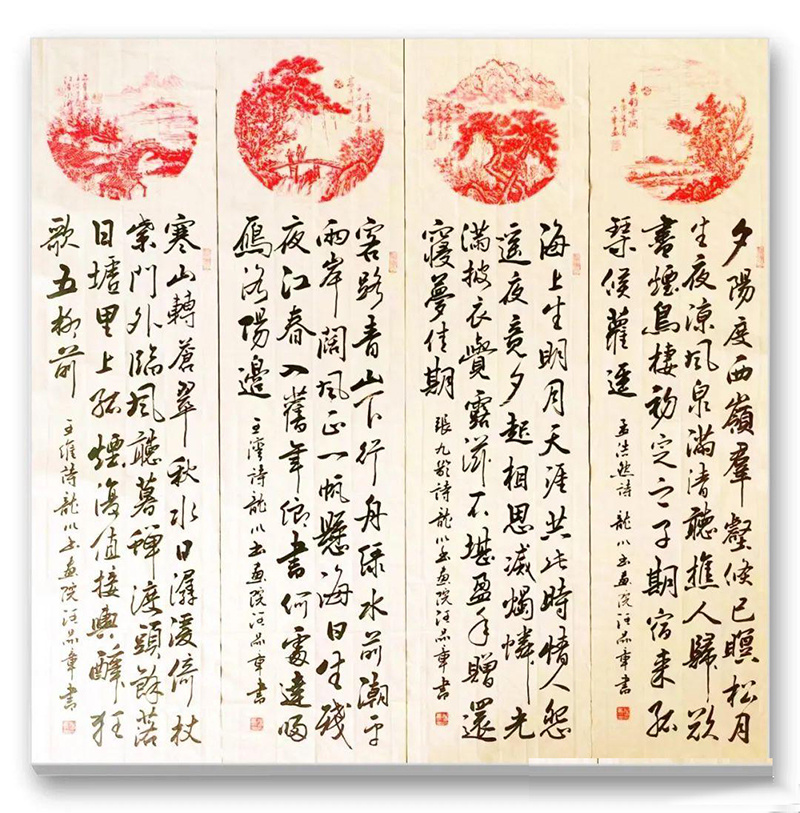 夕陽度西嶺羣壑倏已暝松月
生夜涼風泉滿清聽樵人歸欲
盡煙鳥棲初定之子期宿來孤
琴候蘿逕 孟浩然詩 龍川书画院汪品章書
海上生明月天涯共此時情人怨
遥夜竟夕起相思滅燭憐光
滿披衣覺露滋不堪盈手贈還
寢夢佳期 張九齡詩龍川书画院汪品章書
客路青山下行舟绿水前潮平
兩岸闊風正一帆懸海日生殘
夜江春入舊年鄉書何處達歸
鴈洛陽邊 王灣詩龍川书画院汪品章書
寒山轉蒼翠秋水日潺湲倚杖
柴門外臨風聽暮蟬渡頭餘落
日墟里上孤煙復值接輿醉狂
歌五柳前 王維詩龍川书画院汪品章書